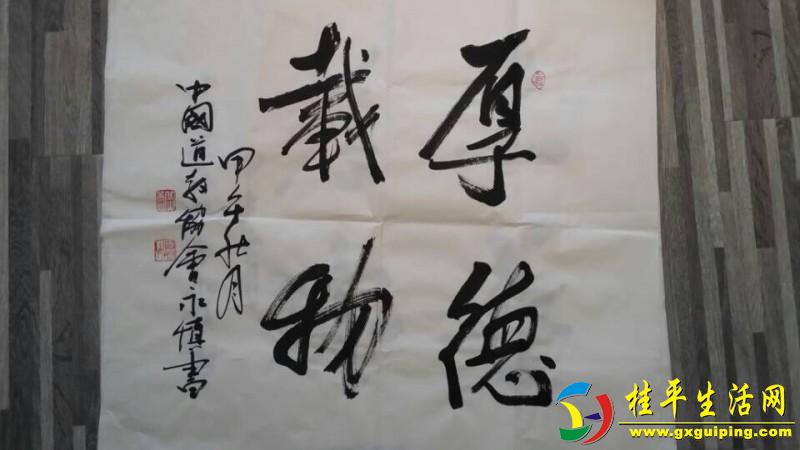 厚德
載物
甲午秋月
中國道教協會永慎書
桂平生活网
www.gxguiping.com